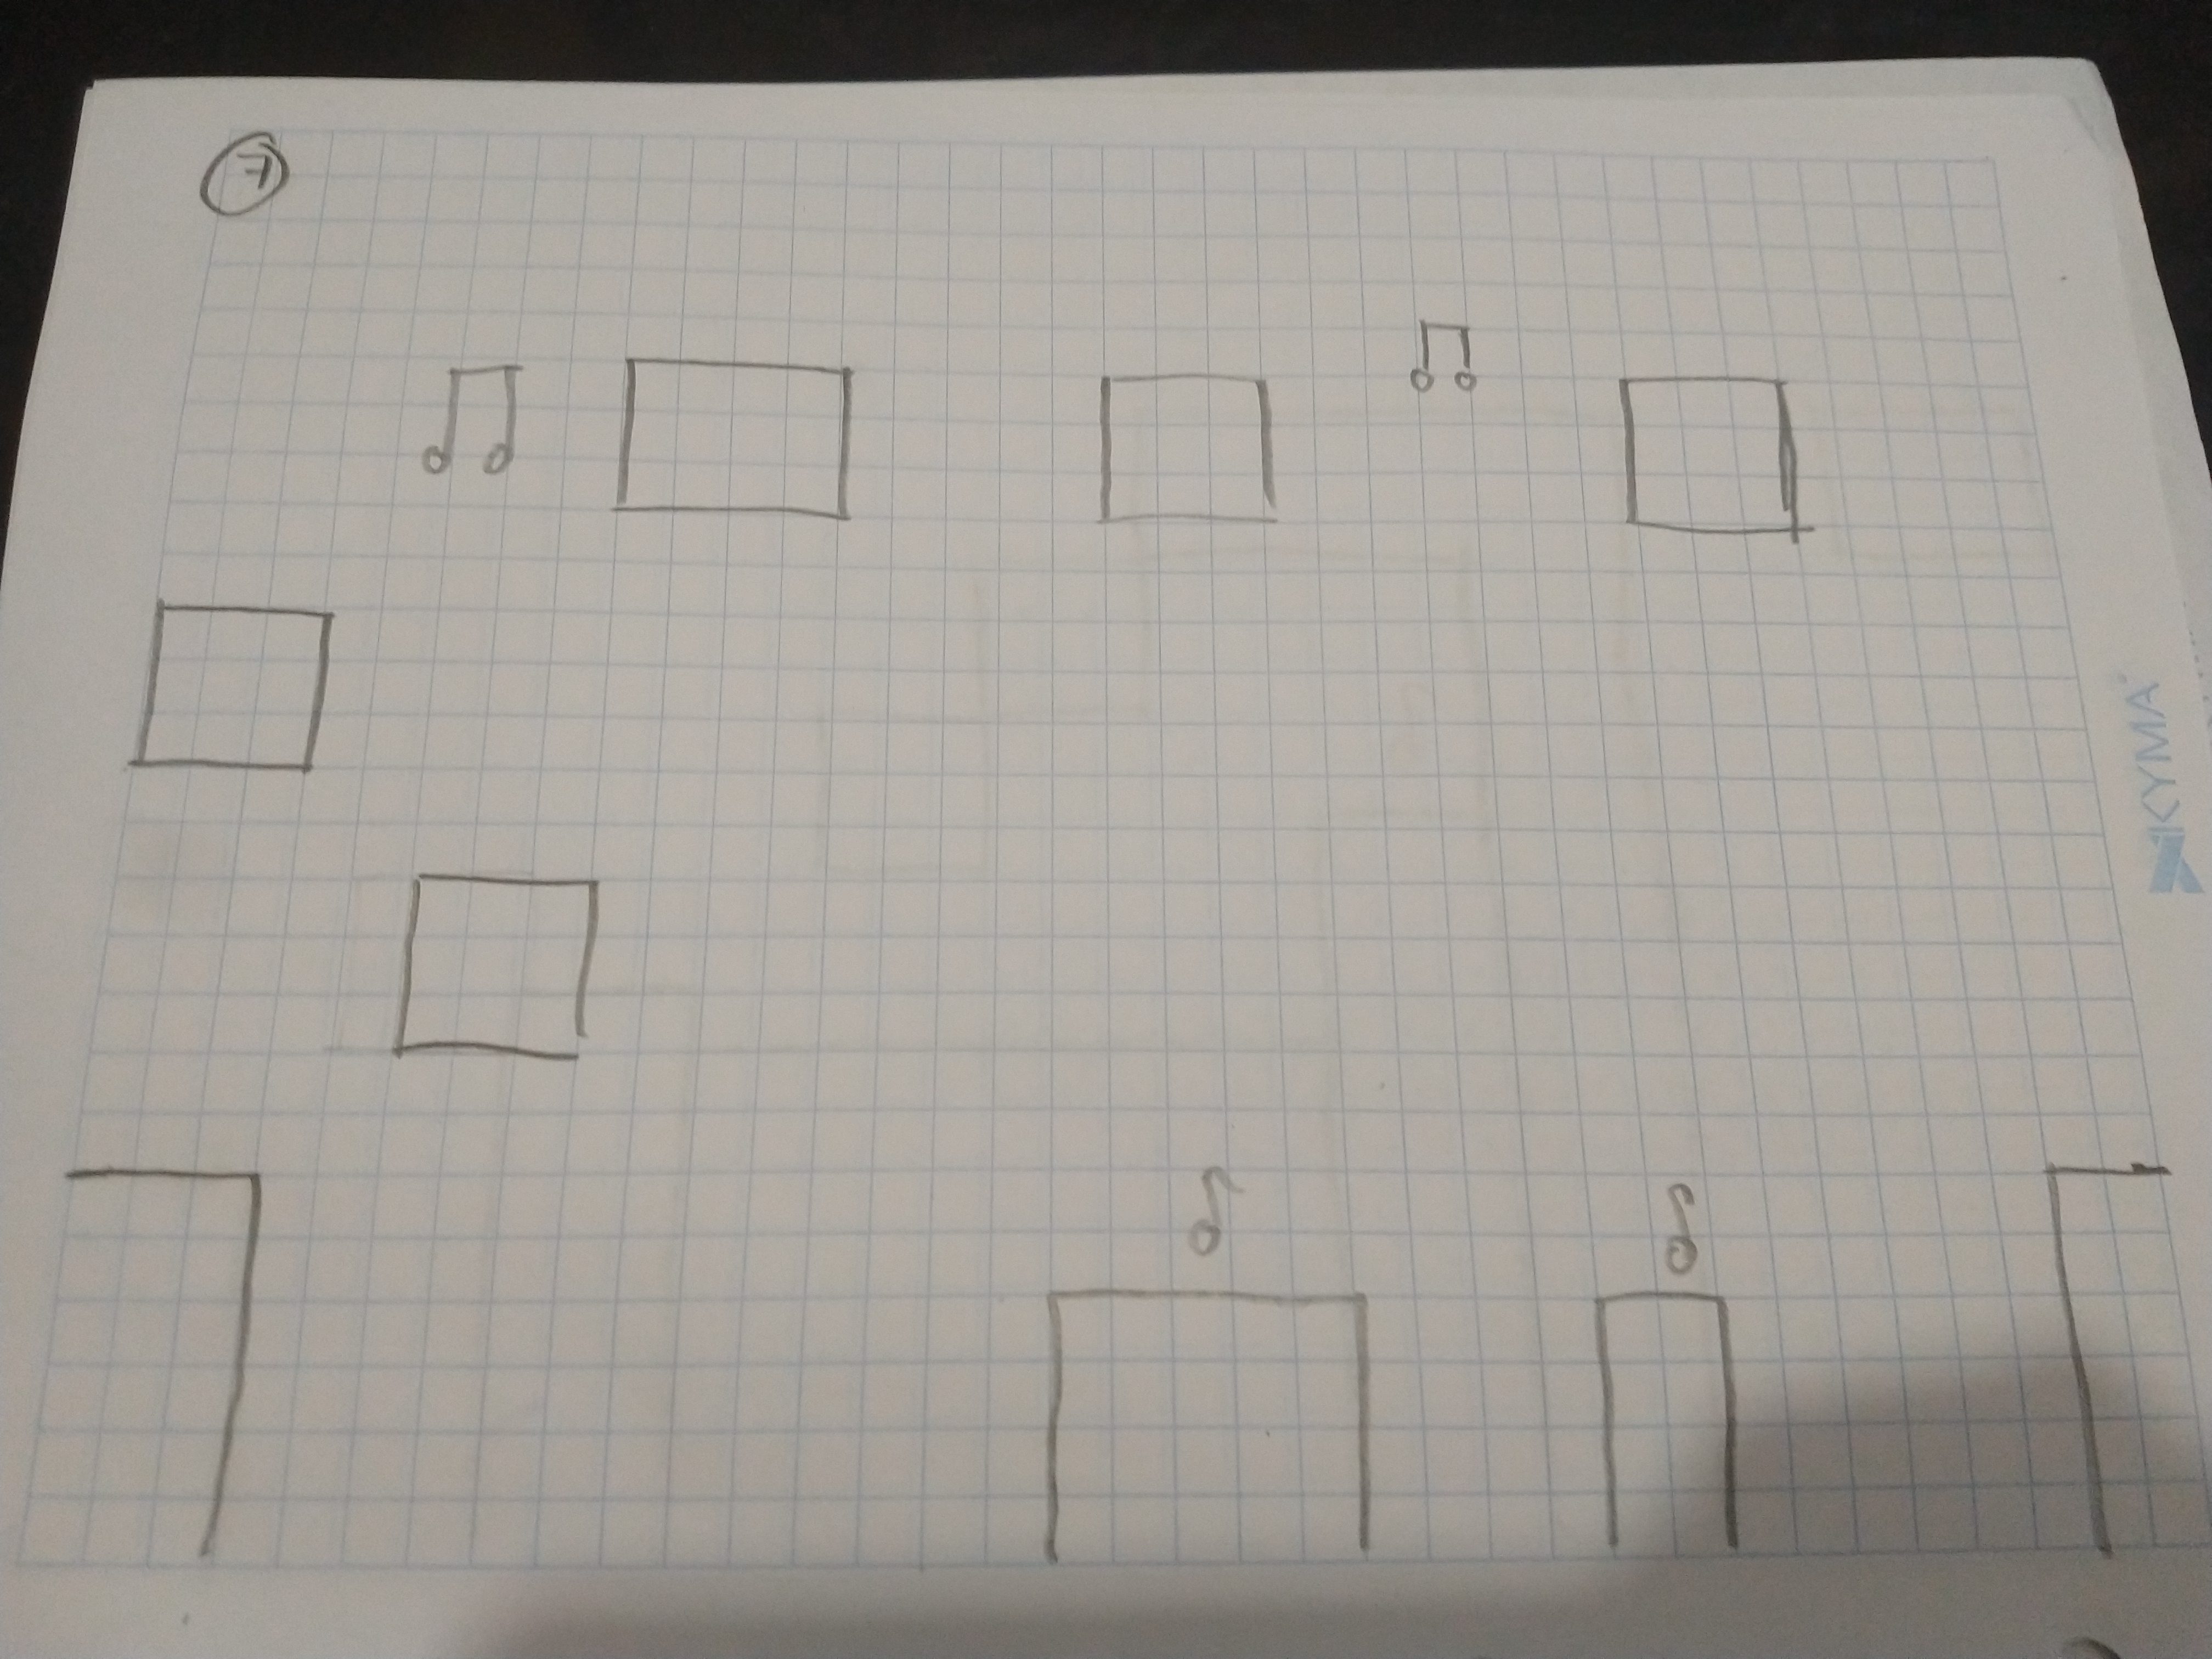 7
KYMA